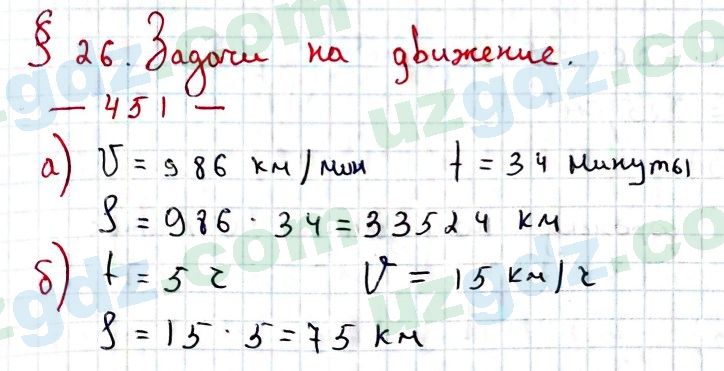 § 26. Задачи на движение.
— 451 —
а) V = 986 км/мин t = 34 минуты
S = 986 · 34 = 33524 км
б) t = 5 ч V = 15 км/ч
S = 15 · 5 = 75 км
uzgdz.com